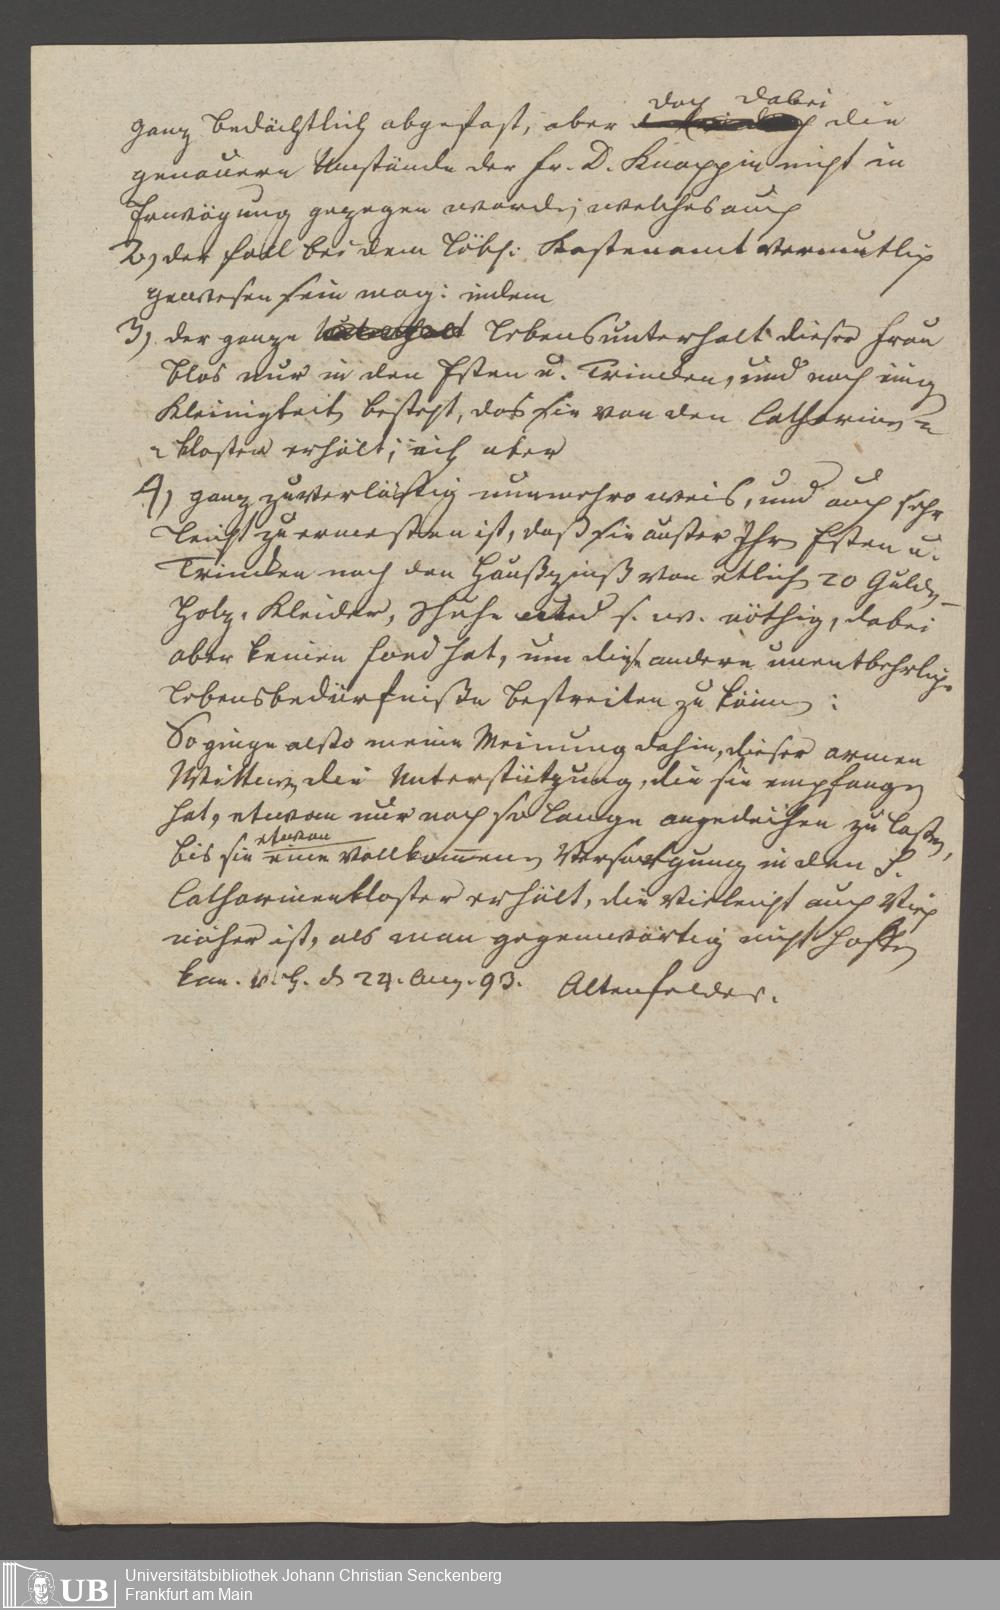 doch dabei
ganz bedächtlich abgefast, aber die
genauern Umstände der Fr. D. Knappin nicht in
Erwägung gezogen worden; welches auch
2) der Fall bei dem löbl: Kastenamt vermutlich
gewesen sein mag: indem
3) der ganze Unterhalt Lebensunterhalt dieser Frau
blos nur in den Essen u. Trincken, und noch einig
Kleinigkeiten bestehet, das sie von den Catharinen=
=kloster erhält; ich aber
4) ganz zuverlässig nunmehro weis, und auch sehr
leicht zu ermessen ist, daß sie ausser Ihr Essen u.
Trincken noch den Haußzinß von etlich 20 Gulden
Holz, Kleider, Schuhe und s. w. nöthig, dabei
aber keinen fond hat, um diese andere unentbehrliche
Lebensbedürfnisse bestreiten zu können:
So ginge also meine Meinung dahin, dieser armen
Wittwe die Unterstützung, die sie empfangen
hat, etwan nur noch so lange angedeihen zu lassen,
etwan
bis sie eine vollkommene Versorgung in den S.
Catharinenkloster erhält, die vieleicht auch viel
näher ist, als man gegenwärtig nicht hoffen
kan. d 24. Aug. 93. Altenfelder.
Universitätsbibliothek Johann Christian Senckenberg
UB Frankfurt am Main